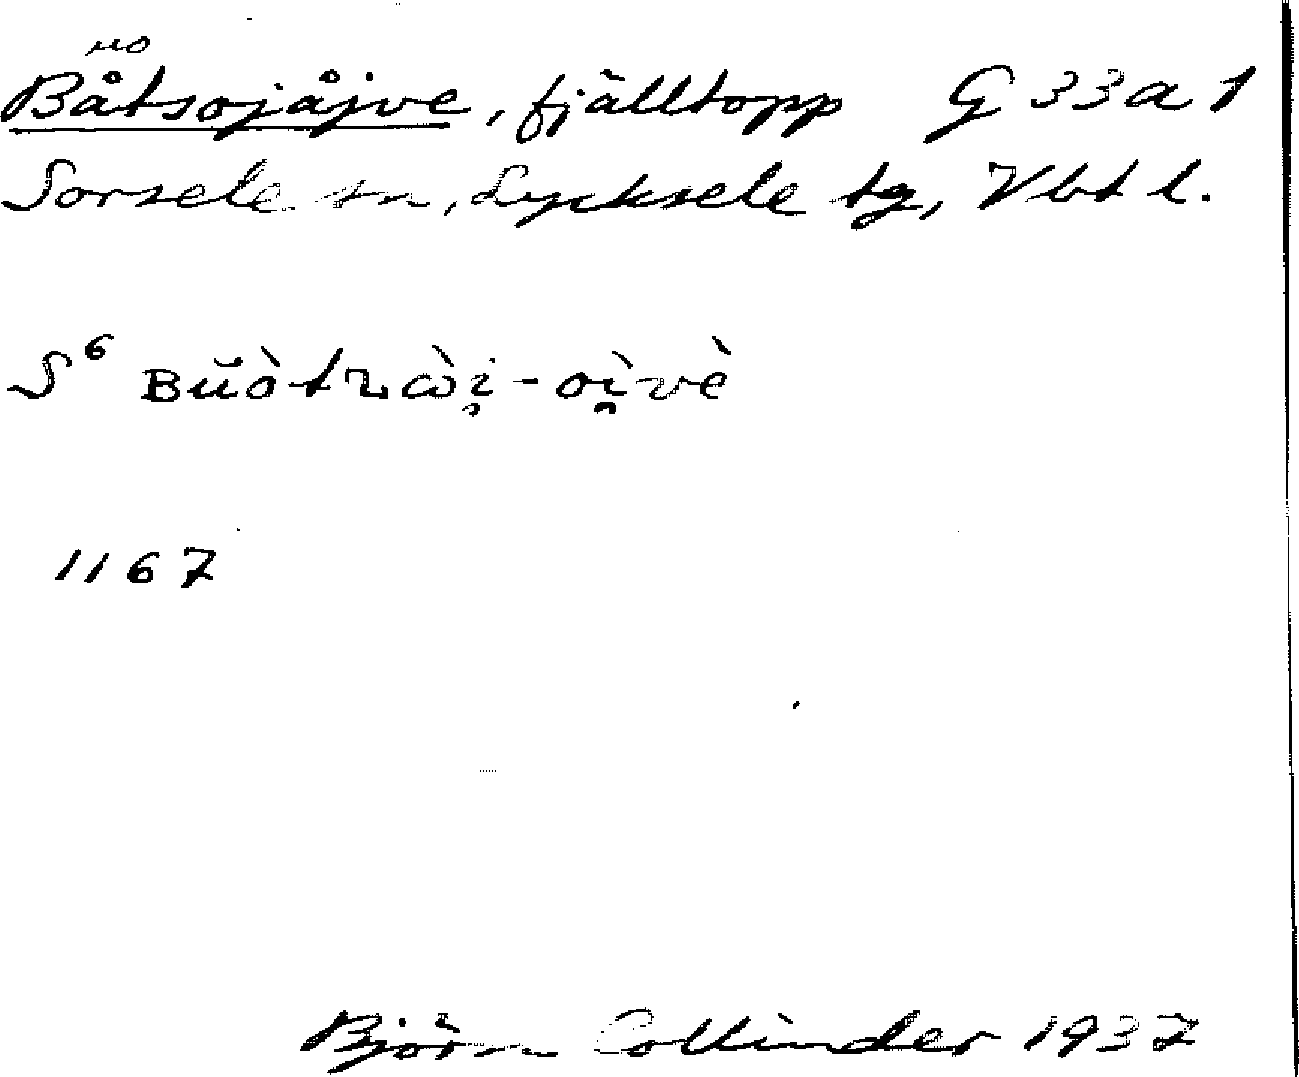 uo
Båtsojåjve, fjälltopp G 33 a 1
Sorsele sn, Lycksele tg, Vbt l.
S⁶
1167
Björn Collinder 1937